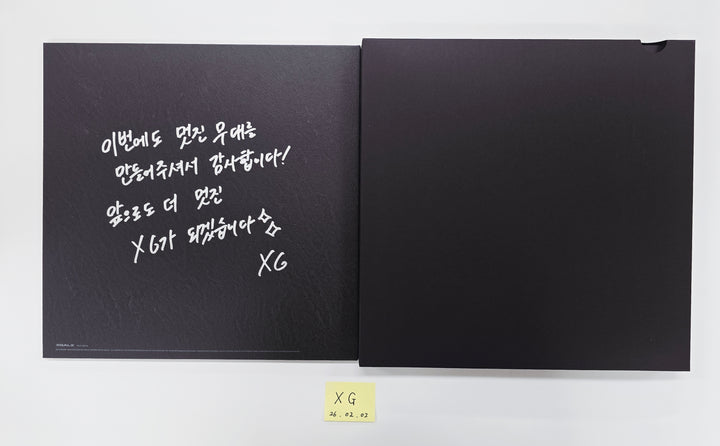 이번에도 멋진 무대를
만들어주셔서 감사합니다!
앞으로도 더 멋진
XG가 되겠습니다
XG
XGALX
XG
26.02.02